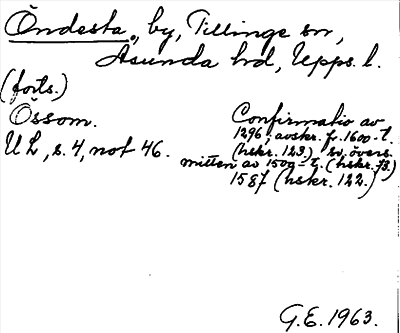 Öndesta, by, Tillinge sn,
Åsunda hd, Upps. l.
(forts.)
Össom.
UL, s. 4, not 46.
Confirmatio av
1296, avskr. fr. 1600-t.
(hskr. 123.) sv. övers.
mitten av 1500-t. (hskr. 73.)
1587 (hskr. 122.)
G.E. 1963.